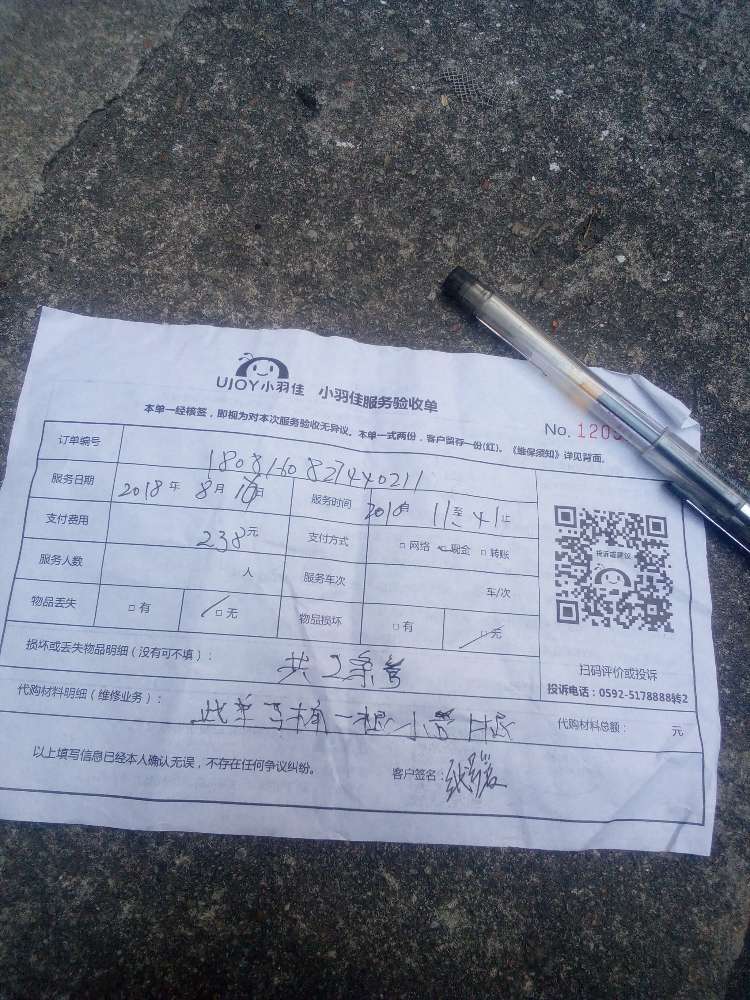 UJOY小羽佳 小羽佳服务验收单
本单一经核签，即视为对本次服务验收无异议。本单一式两份，客户留存一份(红)。《维保须知》详见背面。
No. 120
订单编号 1808160827440211
服务日期 2018年 8月 16日 服务时间 11至41
支付费用 238元 支付方式 □网络 现金 □转账
服务人数 人 服务车次 车/次
物品丢失 □有 □无 物品损坏 □有 □无
损坏或丢失物品明细（没有可不填）： 共2条管
代购材料明细（维修业务）： 此单 一根小管 代购材料总额： 元
以上填写信息已经本人确认无误，不存在任何争议纠纷。 客户签名：
投诉或建议
扫码评价或投诉
投诉电话：0592-5178888转2